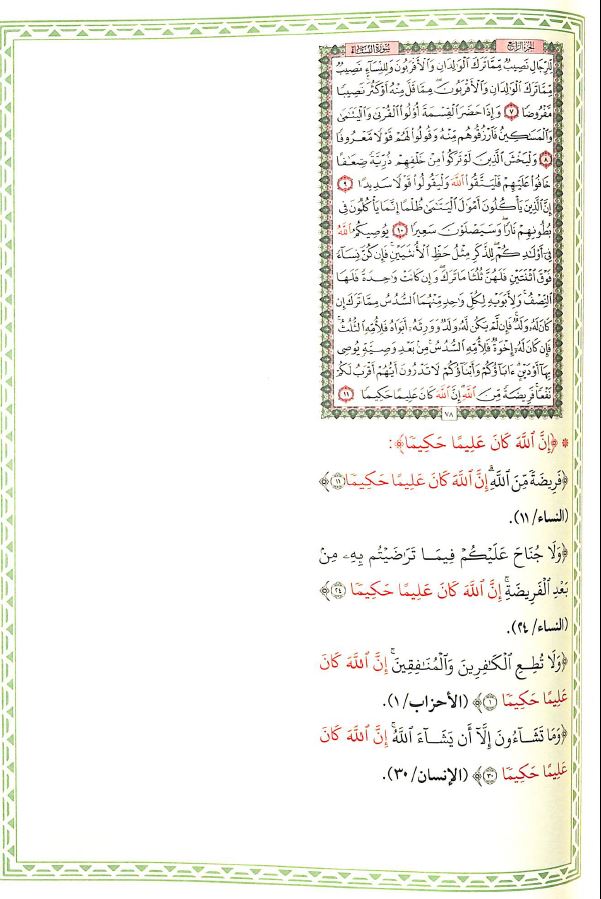 الجزء الرابع
سورة النساء
لِّلرِّجَالِ نَصِيبٌ مِّمَّا تَرَكَ ٱلْوَٰلِدَانِ وَٱلْأَقْرَبُونَ وَلِلنِّسَآءِ نَصِيبٌ
مِّمَّا تَرَكَ ٱلْوَٰلِدَانِ وَٱلْأَقْرَبُونَ مِمَّا قَلَّ مِنْهُ أَوْ كَثُرَ نَصِيبًا
مَّفْرُوضًا ٧ وَإِذَا حَضَرَ ٱلْقِسْمَةَ أُو۟لُوا۟ ٱلْقُرْبَىٰ وَٱلْيَتَٰمَىٰ
وَٱلْمَسَٰكِينُ فَٱرْزُقُوهُم مِّنْهُ وَقُولُوا۟ لَهُمْ قَوْلًا مَّعْرُوفًا
٨ وَلْيَخْشَ ٱلَّذِينَ لَوْ تَرَكُوا۟ مِنْ خَلْفِهِمْ ذُرِّيَّةً ضِعَٰفًا
خَافُوا۟ عَلَيْهِمْ فَلْيَتَّقُوا۟ ٱللَّهَ وَلْيَقُولُوا۟ قَوْلًا سَدِيدًا ٩
إِنَّ ٱلَّذِينَ يَأْكُلُونَ أَمْوَٰلَ ٱلْيَتَٰمَىٰ ظُلْمًا إِنَّمَا يَأْكُلُونَ فِى
بُطُونِهِمْ نَارًا وَسَيَصْلَوْنَ سَعِيرًا ١٠ يُوصِيكُمُ ٱللَّهُ
فِىٓ أَوْلَٰدِكُمْ لِلذَّكَرِ مِثْلُ حَظِّ ٱلْأُنثَيَيْنِ فَإِن كُنَّ نِسَآءً
فَوْقَ ٱثْنَتَيْنِ فَلَهُنَّ ثُلُثَا مَا تَرَكَ وَإِن كَانَتْ وَٰحِدَةً فَلَهَا
ٱلنِّصْفُ وَلِأَبَوَيْهِ لِكُلِّ وَٰحِدٍ مِّنْهُمَا ٱلسُّدُسُ مِمَّا تَرَكَ إِن
كَانَ لَهُۥ وَلَدٌ فَإِن لَّمْ يَكُن لَّهُۥ وَلَدٌ وَوَرِثَهُۥٓ أَبَوَاهُ فَلِأُمِّهِ ٱلثُّلُثُ
فَإِن كَانَ لَهُۥٓ إِخْوَةٌ فَلِأُمِّهِ ٱلسُّدُسُ مِنۢ بَعْدِ وَصِيَّةٍ يُوصِى
بِهَآ أَوْ دَيْنٍ ءَابَآؤُكُمْ وَأَبْنَآؤُكُمْ لَا تَدْرُونَ أَيُّهُمْ أَقْرَبُ لَكُمْ
نَفْعًا فَرِيضَةً مِّنَ ٱللَّهِ إِنَّ ٱللَّهَ كَانَ عَلِيمًا حَكِيمًا ١١
٧٨
* ﴿إِنَّ ٱللَّهَ كَانَ عَلِيمًا حَكِيمًا﴾:
﴿فَرِيضَةً مِّنَ ٱللَّهِ إِنَّ ٱللَّهَ كَانَ عَلِيمًا حَكِيمًا ١١﴾
(النساء/ ١١).
﴿وَلَا جُنَاحَ عَلَيْكُمْ فِيمَا تَرَٰضَيْتُم بِهِۦ مِنۢ
بَعْدِ ٱلْفَرِيضَةِ إِنَّ ٱللَّهَ كَانَ عَلِيمًا حَكِيمًا ٢٤﴾
(النساء/ ٢٤).
﴿وَلَا تُطِعِ ٱلْكَٰفِرِينَ وَٱلْمُنَٰفِقِينَ إِنَّ ٱللَّهَ كَانَ
عَلِيمًا حَكِيمًا ١﴾ (الأحزاب/ ١).
﴿وَمَا تَشَآءُونَ إِلَّآ أَن يَشَآءَ ٱللَّهُ إِنَّ ٱللَّهَ كَانَ
عَلِيمًا حَكِيمًا ٣٠﴾ (الإنسان/ ٣٠).